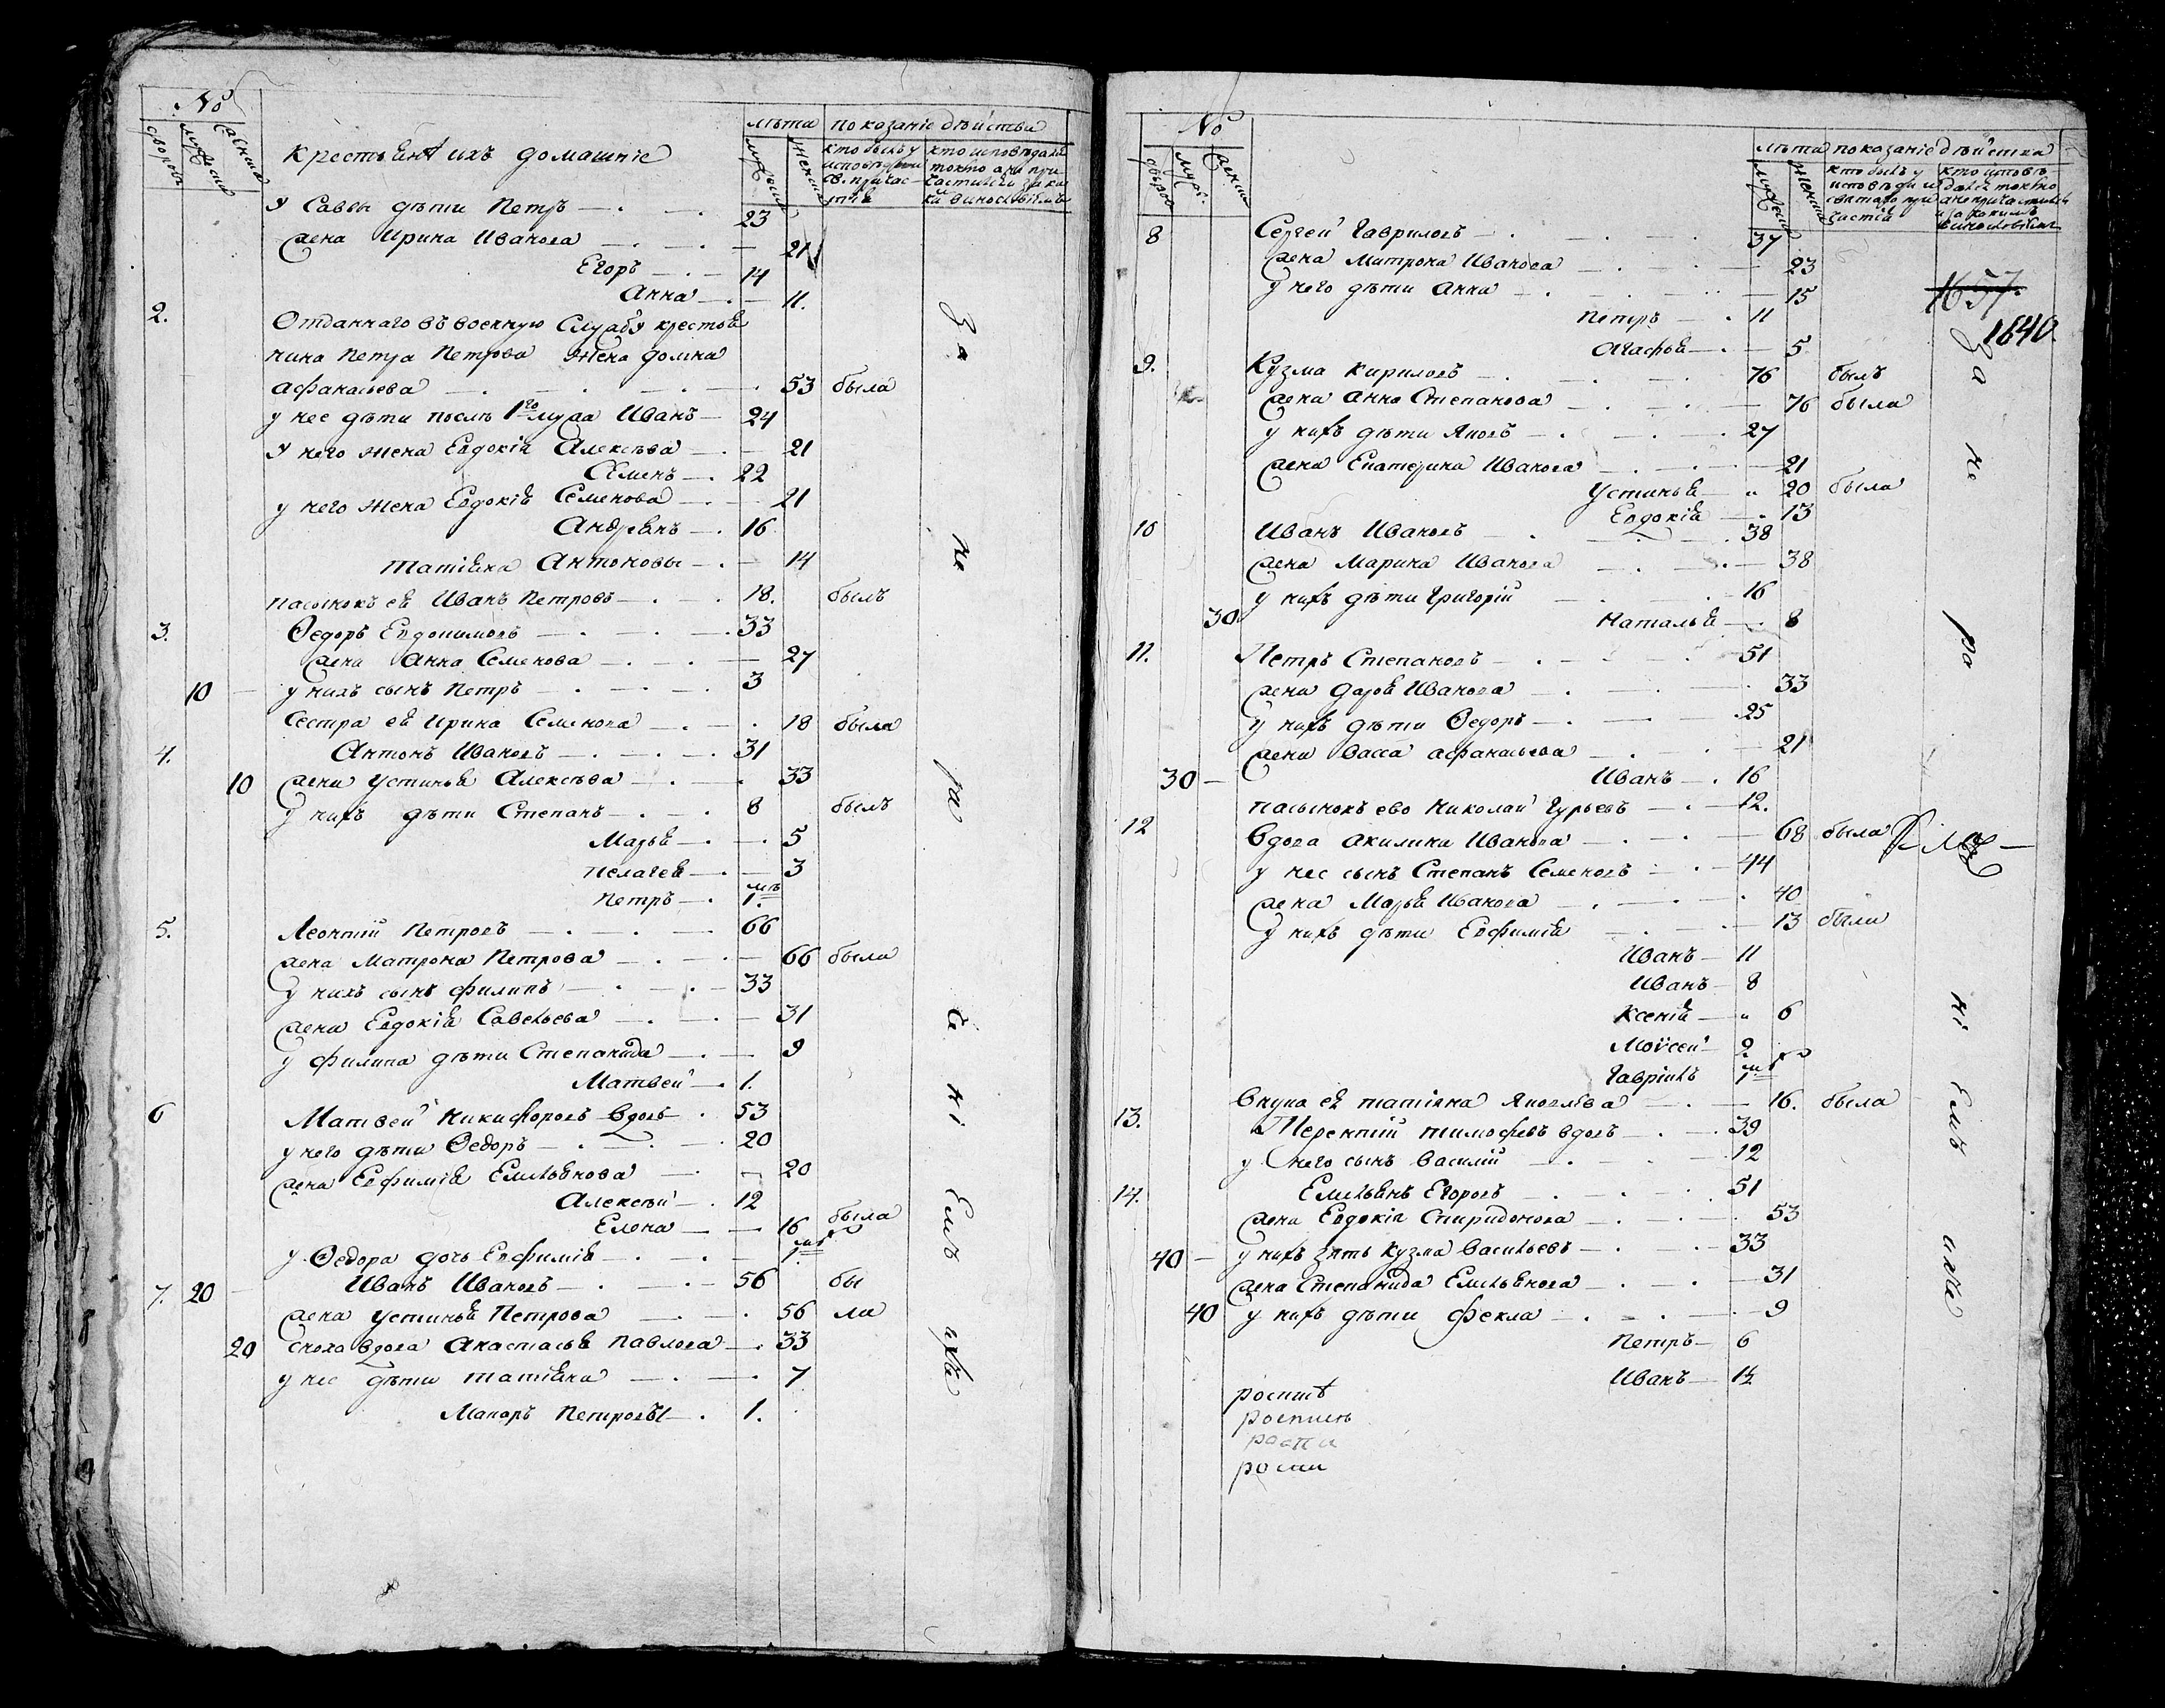 №
дворовъ мужеска женска
крестьянѣ ихъ домашніе
лѣта показаніе дѣйства
мужеска женска кто былъ у исповѣди и св. причастія кто исповѣдался токмо а не причастился и за каки виносл
У Саввы дѣти Петръ 23
жена Ирина Иванова 21
Егоръ 14
Анна 11.
2. Отданнаго въ военную службу крестья
нина Петра Петрова жена домна
афанасьева 53 была
у нее дѣти послѣ 1го мужа Иванъ 24
У него жена Евдокія Алексѣва 21
Семенъ 22
у него жена Евдокія Семенова 21
Андреянъ 16
татіяна Антоновы 14
пасынокъ ея Иванъ Петровъ 18. былъ
3. Ѳедоръ Евдокимовъ 33
жена Анна Семенова 27
10 у нихъ сынъ Петръ 3
Сестра ея Ирина Семенова 18 была
4. Антонъ Ивановъ 31
10 жена Устинья Алексѣва 33
у нихъ дѣти Степанъ 8 былъ
Марья 5
пелагея 3
Петръ 1. мѣ
5. Леонтій Петровъ 66
жена Матрона Петрова 66 была
у нихъ сынъ филипъ 33
жена Евдокія Савельева 31
у филипа дѣти Степанида 9
Матвей 1.
6 Матвей Никифоровъ вдовъ 53
у него дѣти Ѳедоръ 20
жена Евфимія Емельянова 20
Алексѣй 12
Елена 16 была
у Ѳедора дочь Евфимія 1. мѣ
7. 20 Иванъ Ивановъ 56 бы
жена Устинья Петрова 56 ла
20 сноха вдова Анастасья Павлова 33
у нее дѣти татіяна 7
Макаръ Петровы 1.
За не ра де ні емъ ихъ
№
дворовъ муже женска
лѣта показаніе дѣйства
мужеска женска кто былъ у исповѣди и святаго причастія кто исповѣдался токмо а не причастился и за какимъ винословіемъ
8 Сергей Гавриловъ 37
жена Матрона Иванова 23
у него дѣти Анна 15
Петръ 11
Агафья 5
1657.
1640.
9. Кузма Кириловъ 76 былъ
жена Анна Степанова 76 была
у нихъ дѣти Яковъ 27
жена Екатерина Иванова 21
Устинья 20 была
Евдокія 13
10 Иванъ Ивановъ 38
жена Марина Иванова 38
у нихъ дѣти Григорій 16
30. Наталья 8
11. Петръ Степановъ 51
жена дарья Иванова 33
у нихъ дѣти Ѳедоръ 25
жена Васса афанасьева 21
30 Иванъ 16
пасынокъ ево Николай Гурьевъ 12.
12 Вдова акилина Иванова 68 была
у нее сынъ Степанъ Семеновъ 44
жена Марья Иванова 40
у нихъ дѣти Евфимія 13 была
Иванъ 11
Иванъ 8
Ксенія 6
Моѵсей 2
Гавріилъ 1 мѣ
Внука ея татіяна Яковлева 16. была
13. Терентій тимофеевъ вдовъ 39
у него сынъ Василій 12
14. Емельянъ Егоровъ 51
жена Евдокія Спиридонова 53
40 у нихъ зять Кузма Васильевъ 33
жена Степанида Емельянова 31
40 у нихъ дѣти Фекла 9
Петръ 6
Иванъ 1½
роспись
роспись
роспи
роспи
За не ра ді ні емъ ихъ